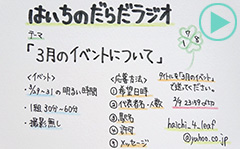 はいちのだらだラジオ
テーマ
「3月のイベントについて」
<イベント>
・3/29〜31の明るい時間
・1組30分〜60分
・撮影無し
<応募方法>
① 希望日時
② 代表者名・人数
③
④ 許可
⑤ メッセージ
タイトルを「3月のイベント」
で送ってください。
23:59〆切
haichi_4_leaf
@yahoo.co.jp